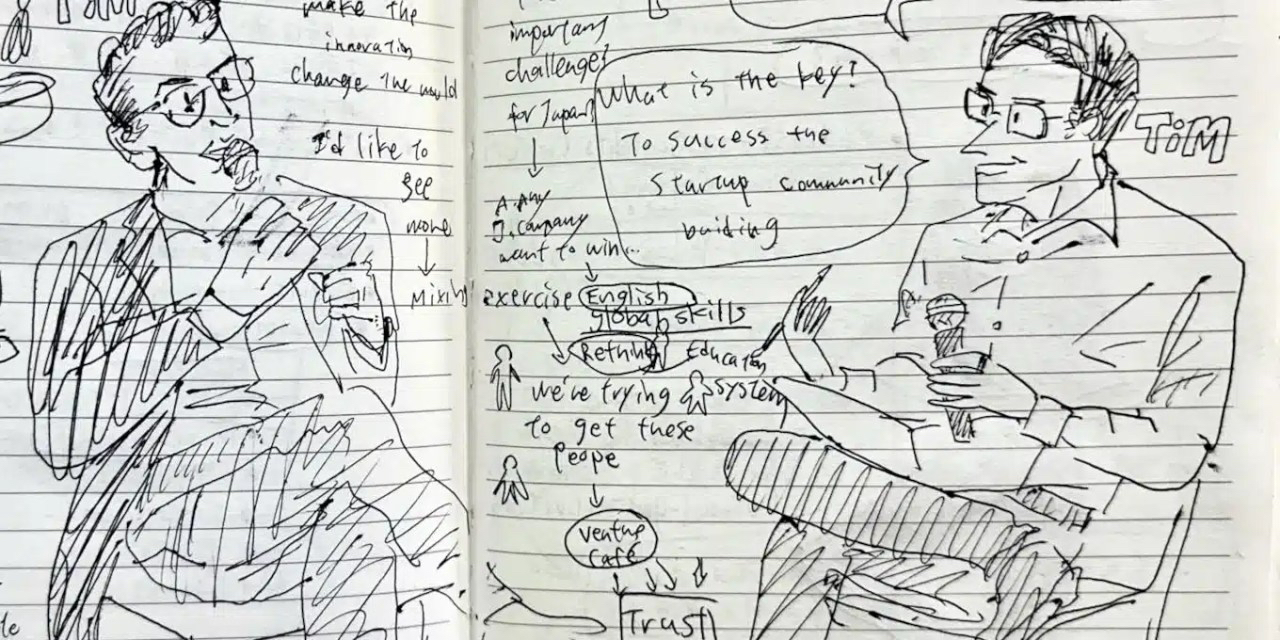 make the
innovation
change the world
I'd like to
see
more
Mixing
important
challenge?
for Japan?
A. Any
J. Company
want to win...
exercise English
global skills
Rethink Education
System
we're trying
to get these
peope
venture
café
Trust
What is the key?
To success the
Startup community
building
TiM